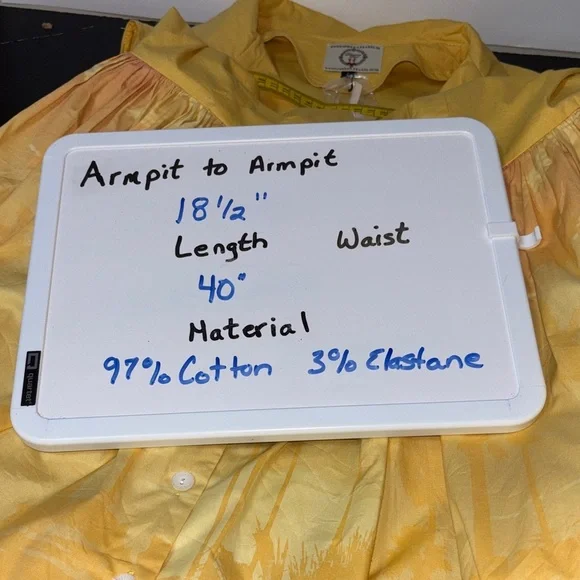 Armpit to Armpit
18 1/2"
Length Waist
40"
Material
97% Cotton 3% Elastane
quartet